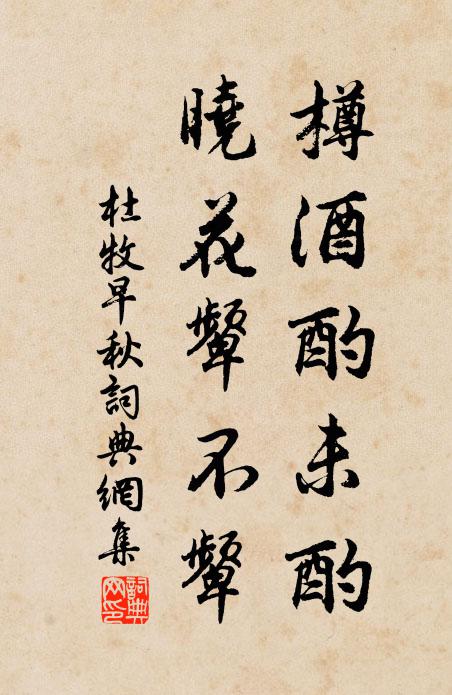 樽酒酌未酌
曉花顰不顰
杜牧早秋詞典網集
詞典網印